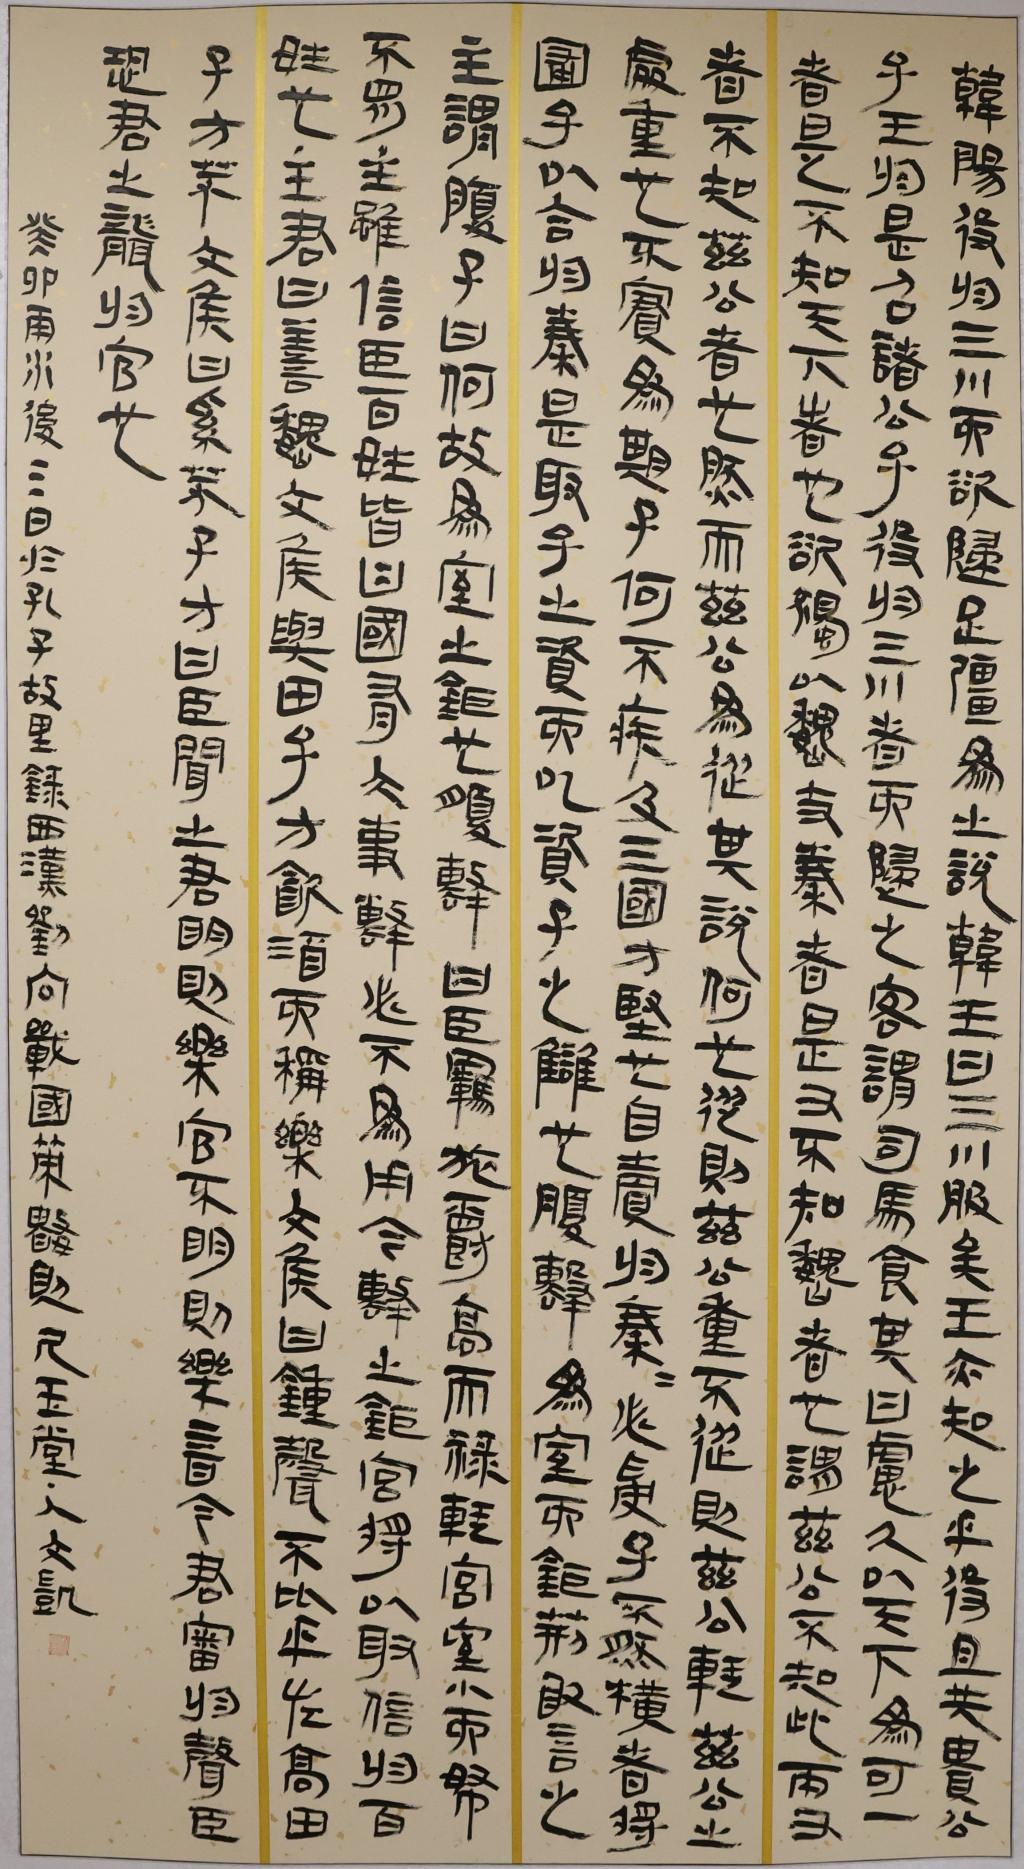 韓陽役於三川而欲歸足彊為之說韓王曰三川服矣王亦知之乎役且共貴公
子王於是召諸公子役於三川者而歸之客謂司馬食其曰慮久以天下為可一
者是不知天下者也欲獨以魏支秦者是又不知魏者也謂茲公不知此兩又
者不知茲公者也然而茲公為從其說何也從則茲公重不從則茲公輕茲公之
處重也不實為期子何不疾及三國方堅也自賣於秦=必受子不然橫者將
圖子以合於秦是取子之資而以資子之讎也腹擊為室而鉅荊敢言之
主謂腹子曰何故為室之鉅也腹擊曰臣羈旅爵高而祿輕宮室小而帑
不眾主雖信臣百姓皆曰國有大事擊必不為用今擊之鉅宮將以取信於百
姓也主君曰善魏文侯與田子方飲酒而稱樂文侯曰鍾聲不比乎左高田
子方笑文侯曰奚笑子方曰臣聞之君明則樂官不明則樂音今君審於聲臣
恐君之聾於官也
癸卯雨水後三日於孔子故里錄西漢劉向戰國策數則 玉堂人文凱